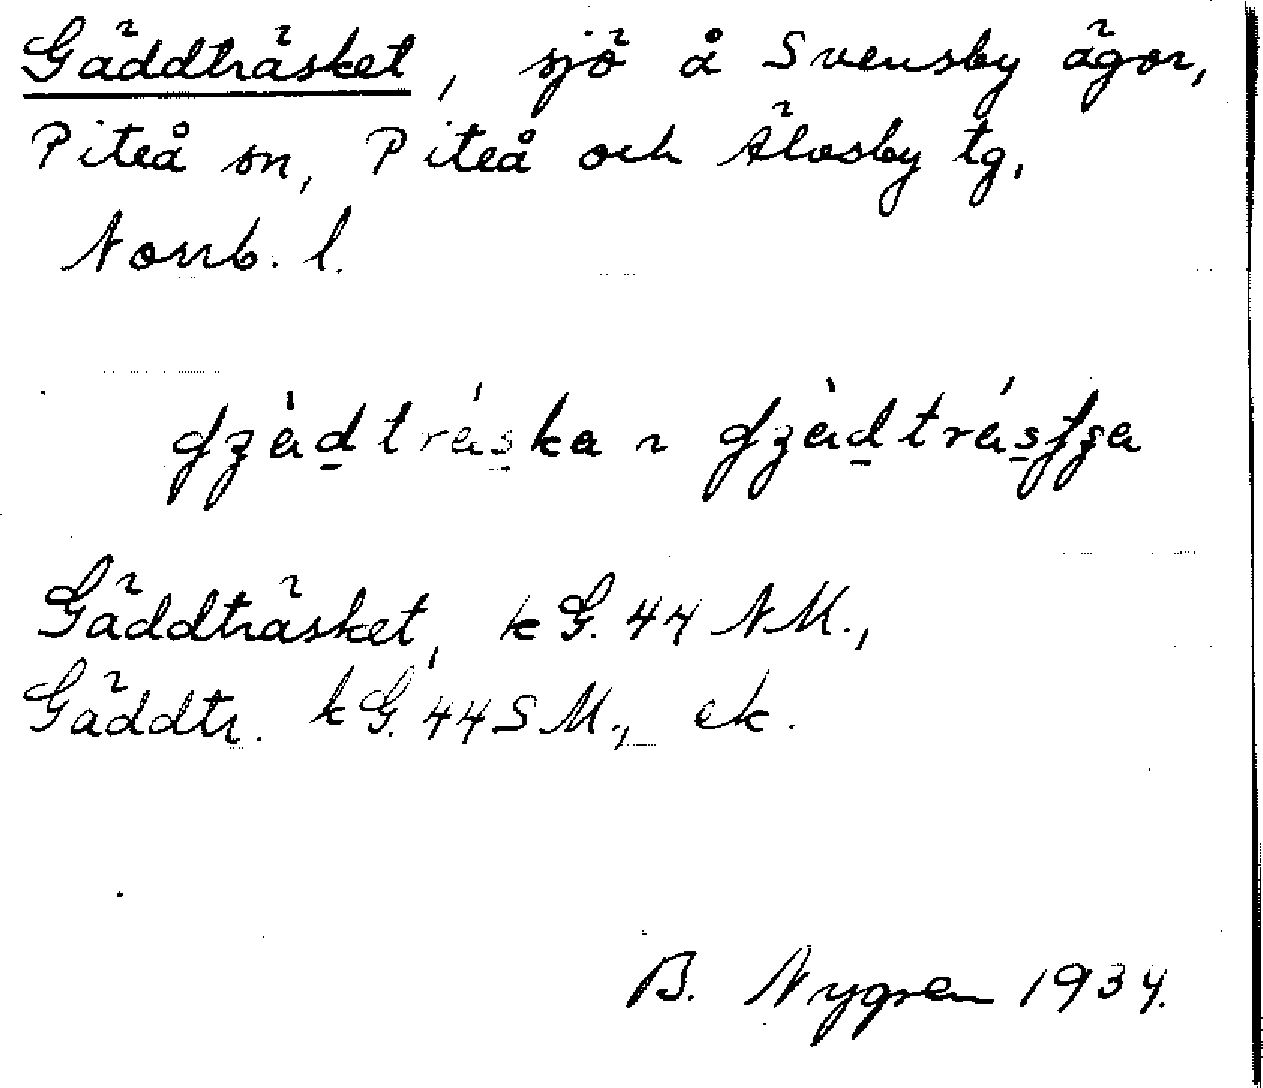 Gäddträsket, sjö å Svensby ägor,
Piteå sn, Piteå och Älvsby tg.
Norrb. l.
Gäddträsket, kG. 44 NM.,
Gäddtr. kG. 44 SM., ek.
B. Nygren 1934.